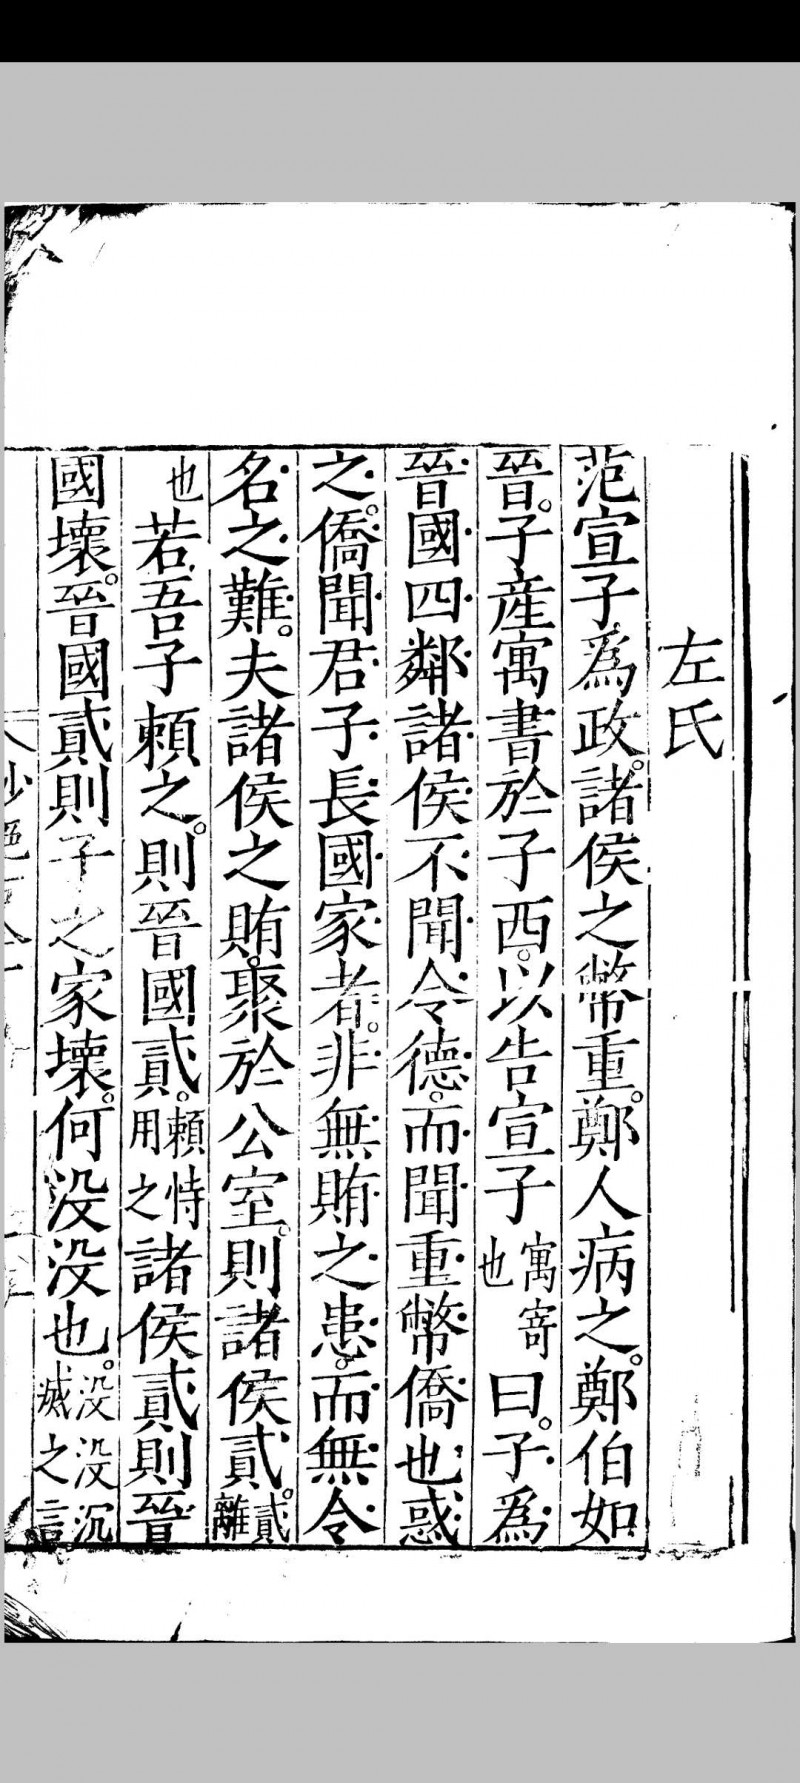 左氏
范宣子為政。諸侯之幣重。鄭人病之。鄭伯如
晉。子産寓書於子西。以告宣子寓寄也曰。子為
晉國四鄰諸侯不聞令德。而聞重幣僑也惑
之。僑聞君子長國家者。非無賄之患。而無令
名之難。夫諸侯之賄。聚於公室。則諸侯貳。貳離
也若吾子賴之。則晉國貳。賴恃用之諸侯貳則晉
國壞。晉國貳則子之家壞。何没没也。没没沉滅之言